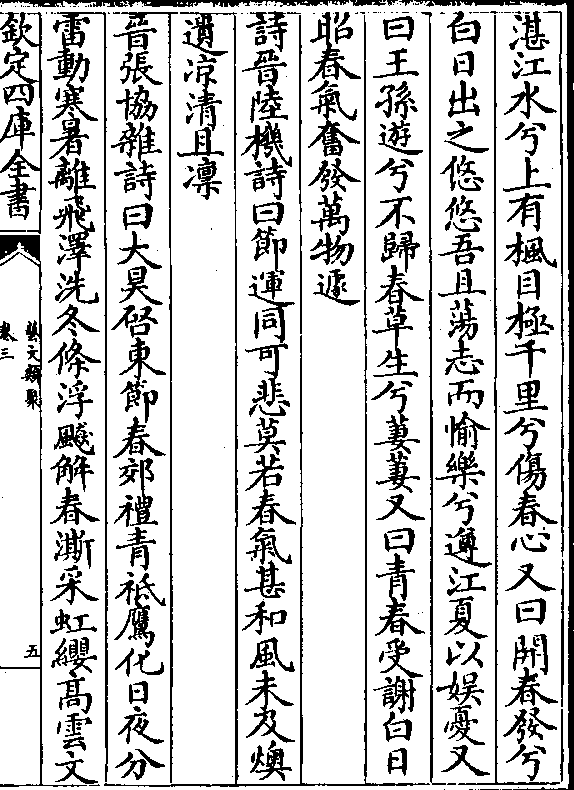 湛江水兮上有楓目極千里兮傷春心又曰開春發兮
白日出之悠悠吾且蕩志而愉樂兮遵江夏以娱憂又
曰王孫遊兮不歸春草生兮萋萋又曰青春受謝白日
昭春氣奮發萬物遽
詩晉陸機詩曰節運同可悲莫若春氣甚和風未及燠
遺凉清且凛
晉張協雜詩曰大昊啓東節春郊禮青祗鷹化日夜分
雷動寒暑離飛澤洗冬條浮飈解春澌采虹纓高雲文
欽定四庫全書
藝文類聚
卷三
五